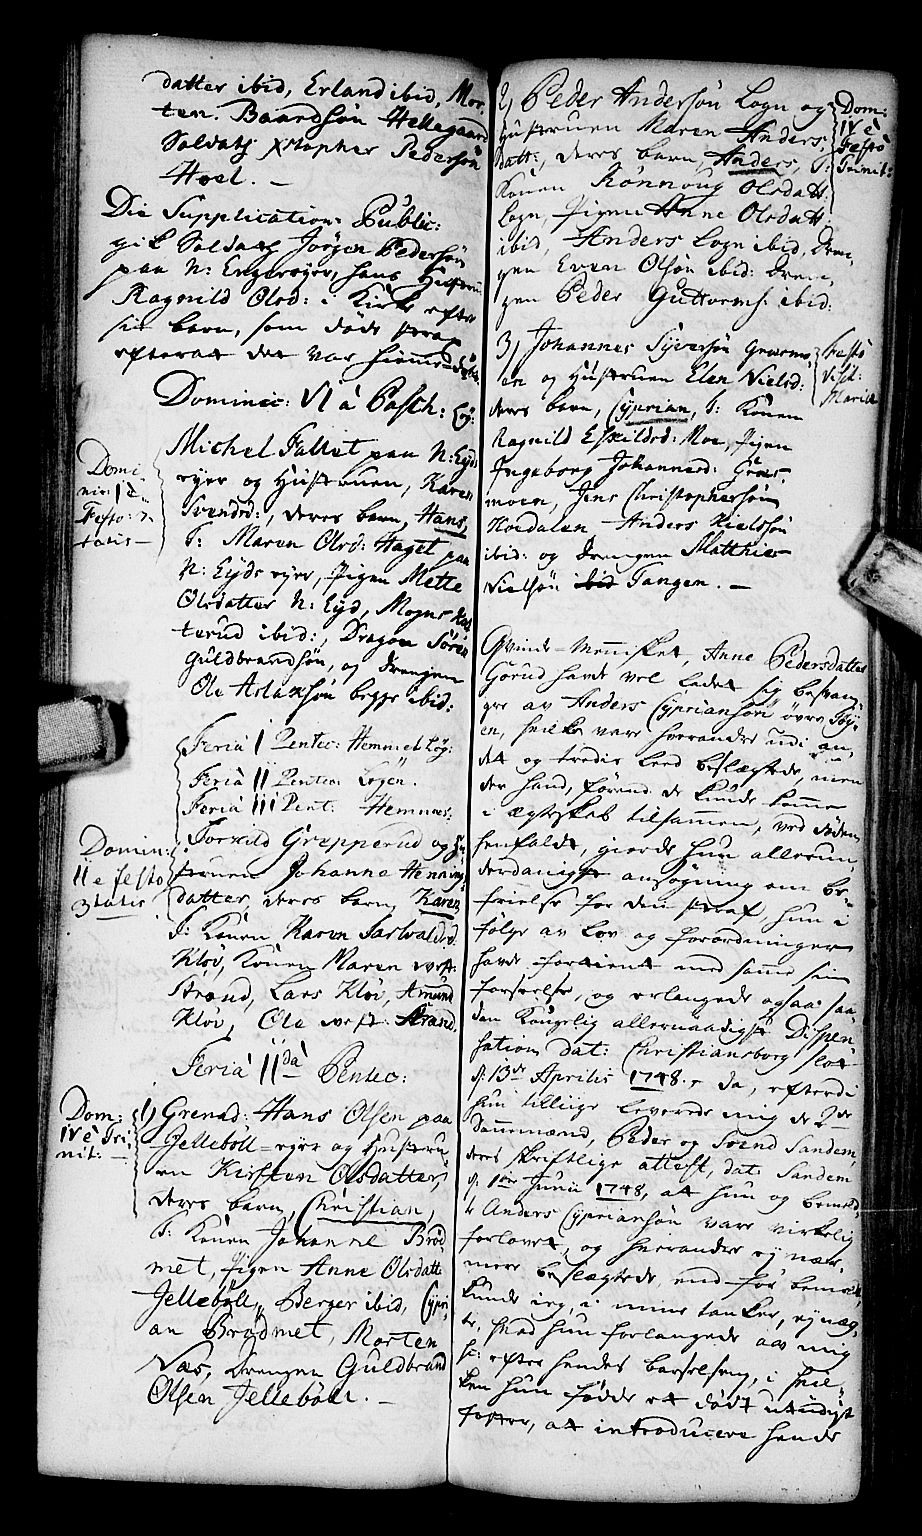 datter ibid, Erland ibid, Mor-
ten Baardsøn Hellegaard
Soldats xstopher Pedersøn
Hoel. —
Die Supplication: Public:
gik Soldats Jørgen Pedersøn
paa N: Engersyer, hans Hustru
Ragnild Olsd: i Kirke efter
sin barn, som døde strax
efterat det var hiemmedøbt.
Dominic: VI à Pasch: Løg:
Domi-
nic: 1 è
Festo 3-
tatis —
Michel Fallet paa N: Eyds
eyer og Hustruen, Karen
Svendsd:, deres barn, Hans,
T: Maren Olsd: Haget paa
N: Eyds eyer, Pigen Mette
Olsdatter N: Eyd, Mogns
terud ibid:, Dragon Søren
Guldbrandsøn, og drengen
Ole Aslaxsøn begge ibid:
Feria I Pentec: Hemmet Løg:
Feria II Pentec: Løgen.
Feria III Pent: Hemnes.
Domin:
II e festo
3tatis
Torkild Grepperud og Hu-
struen Johanne Henning
datter, deres barn, Karen
T: Konen Karen Tarvaldsd.
Kløv, Konen Maren vest:
Strand, Lars Kløv, Amund
Kløv, Ole vest: Strand.
Feria II da Pentec:
Dom:
IV è Tri-
nit: —
1, Grenad: Hans Olsen paa
Jellebøll-eyer og Hustru-
en Kirsten Olsdatter,
deres barn, Christian,
T: Konen Johanne Brød-
met, Pigen Anne Olsdatt:
Jellebøll, Berger ibid, Cypri-
an Brødmet, Morten
Næs, Drengen Guldbrand
Olsen Jellebøll. —
2, Peder Andersøn Løgn og
Hustruen Maren Anders-
datt:, deres barn, Anders, T:
Konen Rønnoug Olsdatt:
Løgn, Pigen Anne Olsdatt:
ibid, Anders Løgn ibid, Dren-
gen Even Olsøn ibid: Dren-
gen Peder Guttorms: ibid:
Dom:
IV è
Festo
Trinit:
3, Johannes Syversøn Græsmo-
en og Hustruen Elen Nielsd:
deres barn, Cyprian, T: Konen
Ragnild Eskildsd: Moe, Pigen
Ingeborg Johannesd: Græs-
moen, Jens Christophersøn
Hoedalen Anders Nielssøn
ibid: og Drengen Matthies
Nielsøn ibid Tangen. —
Festo
Visit:
Mariæ
Qvinde-Mennisket, Anne Pedersdatter
Gorud havde vel ladet sig besvan-
gre av Anders Cypriansøn øvre
en, hvilke vare hverandre udi an-
det og tredie Leed beslægtede, men
der hand, førend de kunde komme
i ægteskab tilsammen, ved døden
henfaldt, giorde hun allerun-
derdanigst ansøgning om be-
frielse for den straf, hun i
følge av Lov og forordninger
havde fortient med samme sin
forseelse, og erlangede ogsaa saa-
dan Kongelig allernaadigst Dispen-
sation, dat: Christiansborg slot
d: 13de Aprilis 1748. Da, efterdi
hun tillige leverede mig de 2de
Dannemænd, Peder og Svend Sandem,
deres skriftlige attest, dat: Sandem
d: 1ste Junii 1748, at hun og bemeld-
te Anders Cypriansøn vare virkelig
forlovet, og hverandre ey nær-
mere beslægtede, end før bemeldt,
kunde ieg, i mine tanker, ey næg-
te, hvad hun forlangede av mig
h: efter hendes barselseng, i hvil-
ken hun fødde et dødt utiidigt
foster, at introducere hende